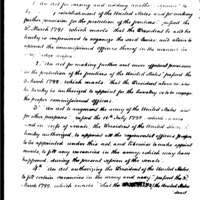 1. An act for raising and adding another
establishment of the United States and for making
further provision for the protection of the frontiers" passed the
3d March 1791. which enacts that the President be &
hereby is empowered to organize the said
appoint the commissioned officers thereof in the manner
may judge
2. An act for making further and more effectual provision
for the protection of the frontiers of the United States passed the
5 March 1792. which enacts that the President alone be and
he hereby is authorized to appoint for the cavalry
the proper commissioned officers.
3. An act to augment the army of the United States and
for other purposes" passed the 16th July 1798.
of the senate, the President of the United
hereby authorized to appoint all the regimental officers
to be appointed under this act, and likewise to make appoint
ments, to fill any vacancies in the army, which may have
happened, during the present session of the senate.
4th An act authorizing the President of the United States
to fill certain vacancies in the army and navy" passed the 3d
March 1799. which enacts "That the President of the United States